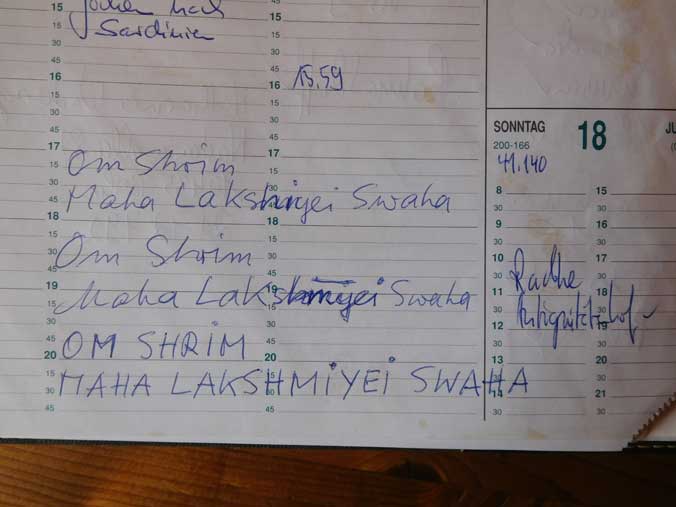 Jochen nach
Sardinien
15.59
Om Shrim
Maha Lakshmyei Swaha
Om Shrim
Maha Lakshmyei Swaha
OM SHRIM
MAHA LAKSHMiYEi SWAHA
SONNTAG 18
200-166
41.140
Radhe
15
30
45
16
15
30
45
17
15
30
45
18
15
30
45
19
15
30
45
20
15
30
45
15
30
45
16
15
30
45
17
15
30
45
18
15
30
45
19
15
30
45
20
15
30
45
8 15
30 30
9 16
30 30
10 17
30 30
11 18
30 30
12 19
30 30
13 20
30 30
14 21
30 30
JU